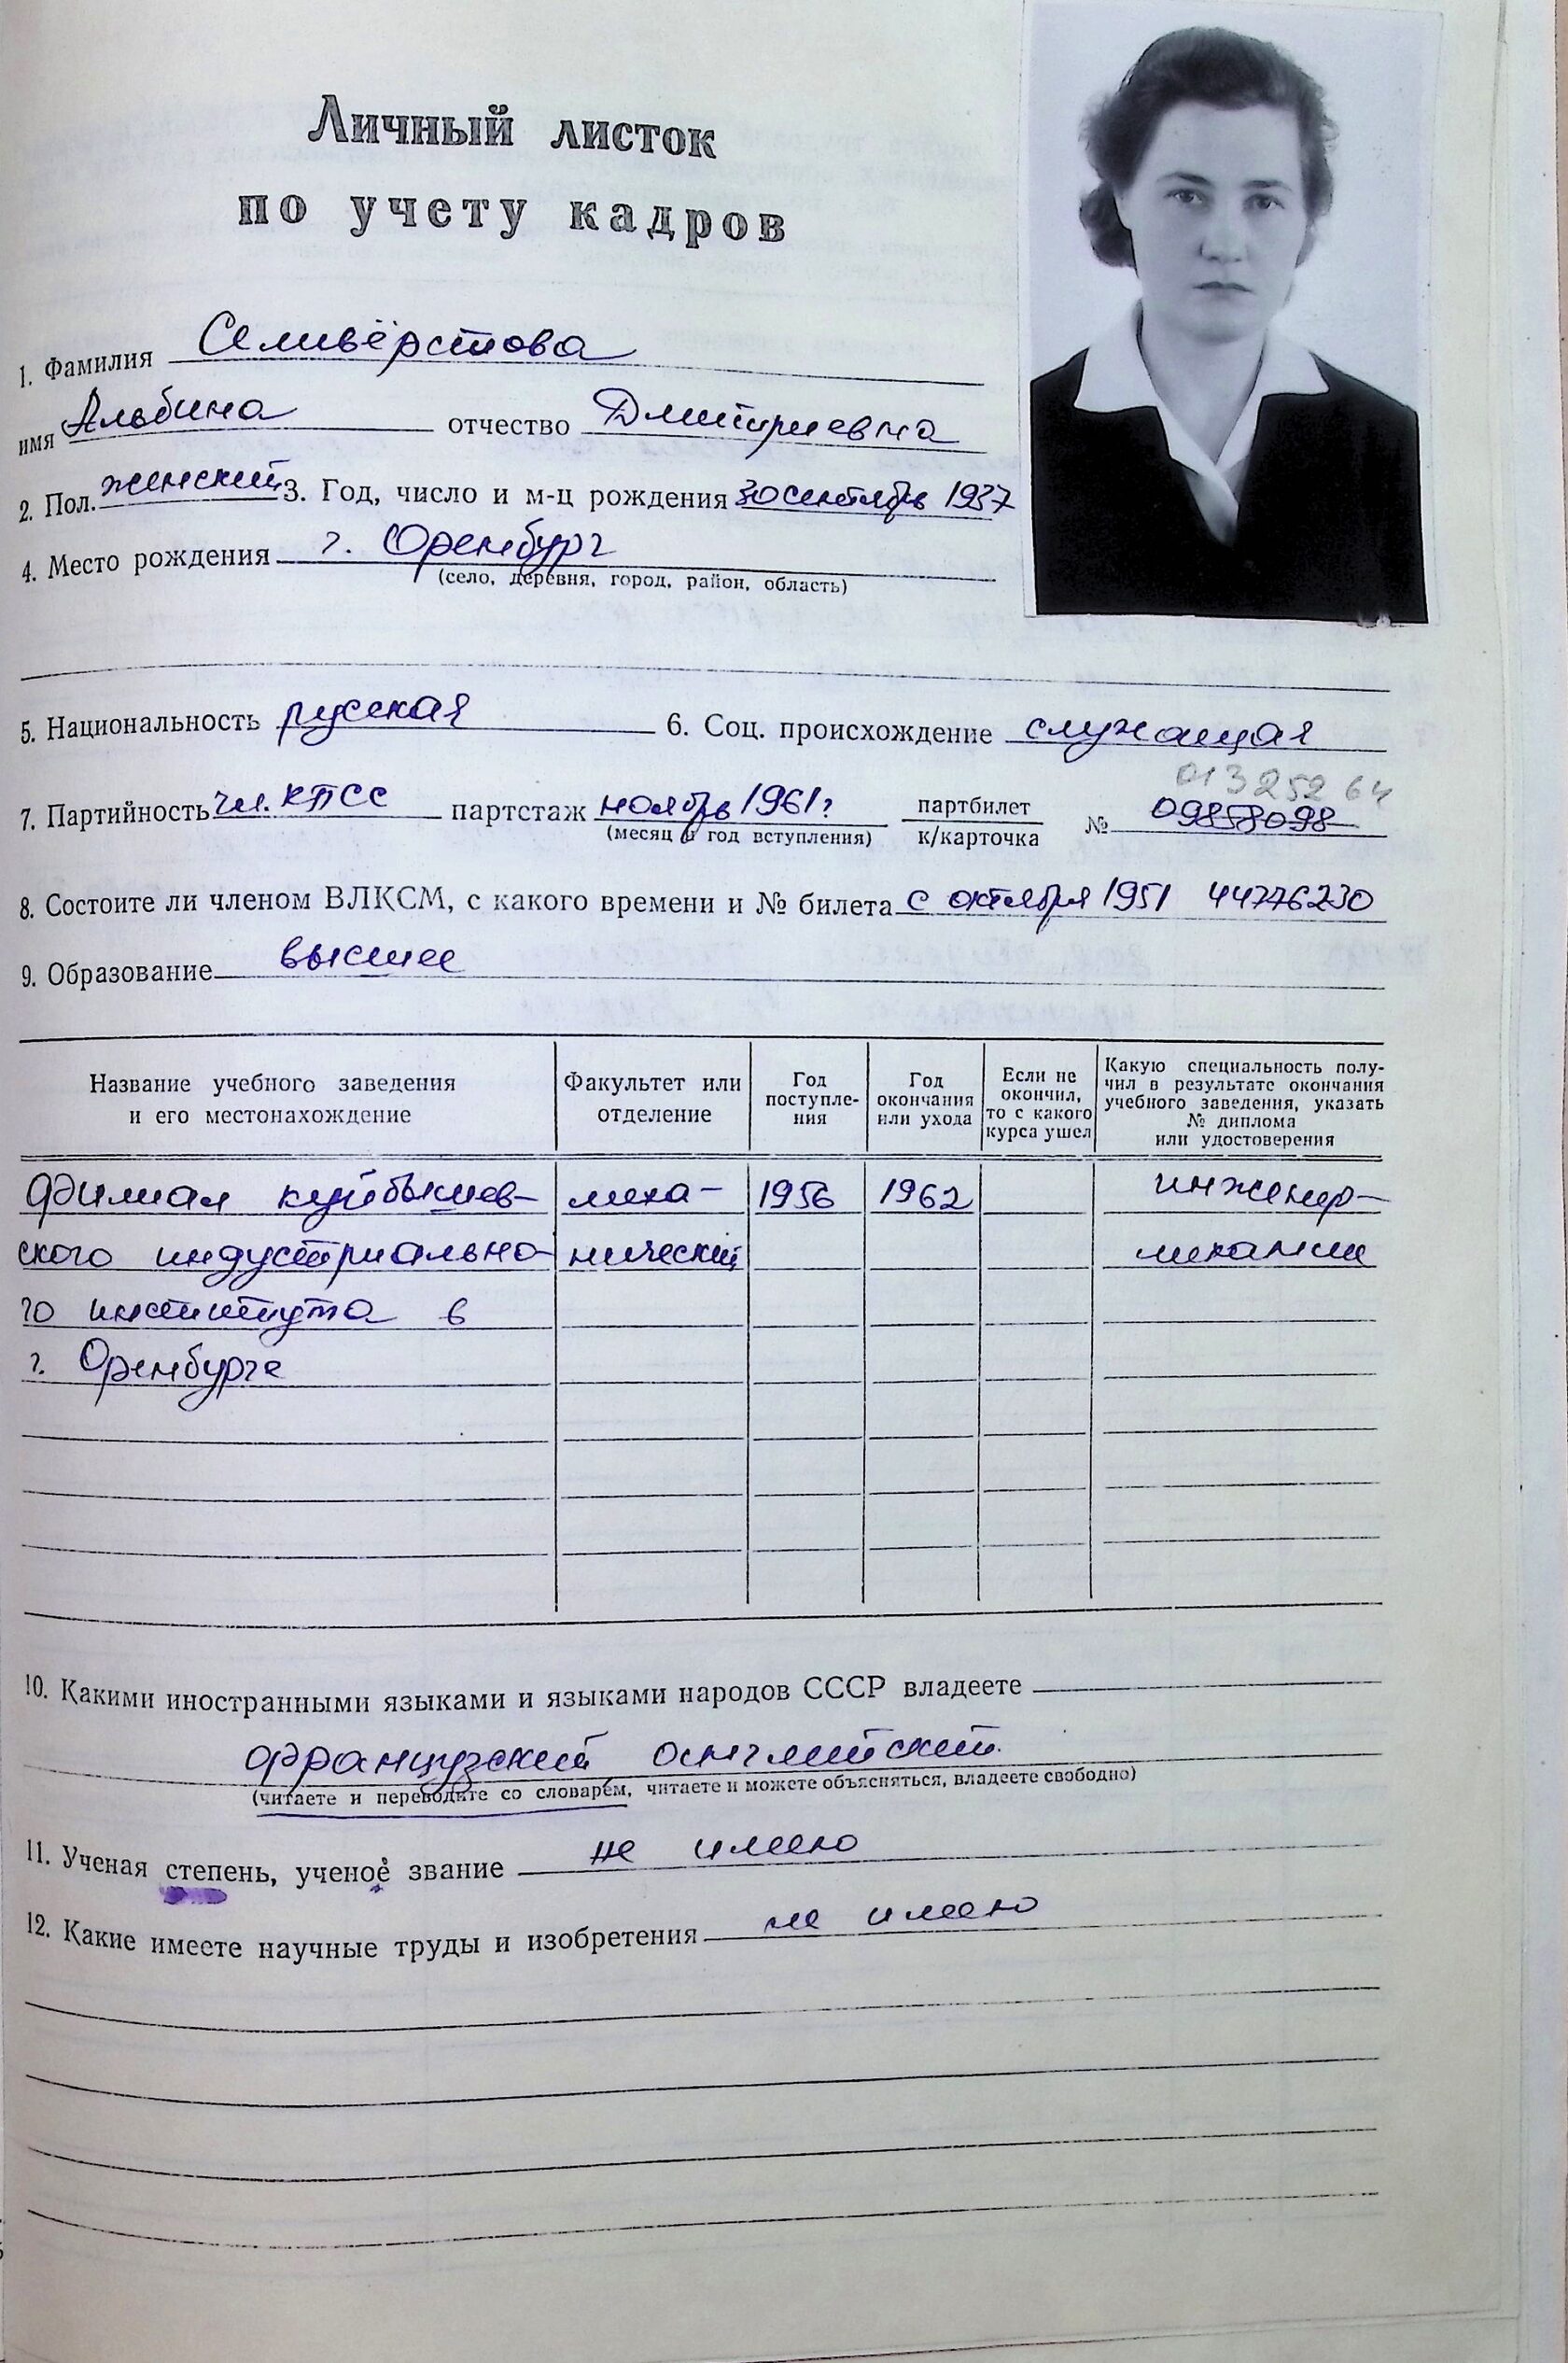 Личный листок
по учету кадров
1. Фамилия Селивёрстова
имя Альбина отчество Дмитриевна
2. Пол. женский 3. Год, число и м-ц рождения 30 сентябрь 1937
4. Место рождения г. Оренбург
(село, деревня, город, район, область)
5. Национальность русская 6. Соц. происхождение служащая
013252 64
7. Партийность чл. КПСС партстаж ноябрь 1961г партбилет № 09858098
(месяц и год вступления) к/карточка
8. Состоите ли членом ВЛКСМ, с какого времени и № билета с октября 1951 44776230
9. Образование высшее
Название учебного заведения и его местонахождение
Факультет или отделение
Год поступле-ния
Год окончания или ухода
Если не окончил, то с какого курса ушел
Какую специальность полу-чил в результате окончания учебного заведения, указать № диплома или удостоверения
филиал куйбышев- меха- 1956 1962 инженер-
ского индустриально- нический механик
го института в
г. Оренбурге
10. Какими иностранными языками и языками народов СССР владеете
французский английский
(читаете и переводите со словарем, читаете и можете объясняться, владеете свободно)
11. Ученая степень, ученое звание не имею
12. Какие имеете научные труды и изобретения не имею